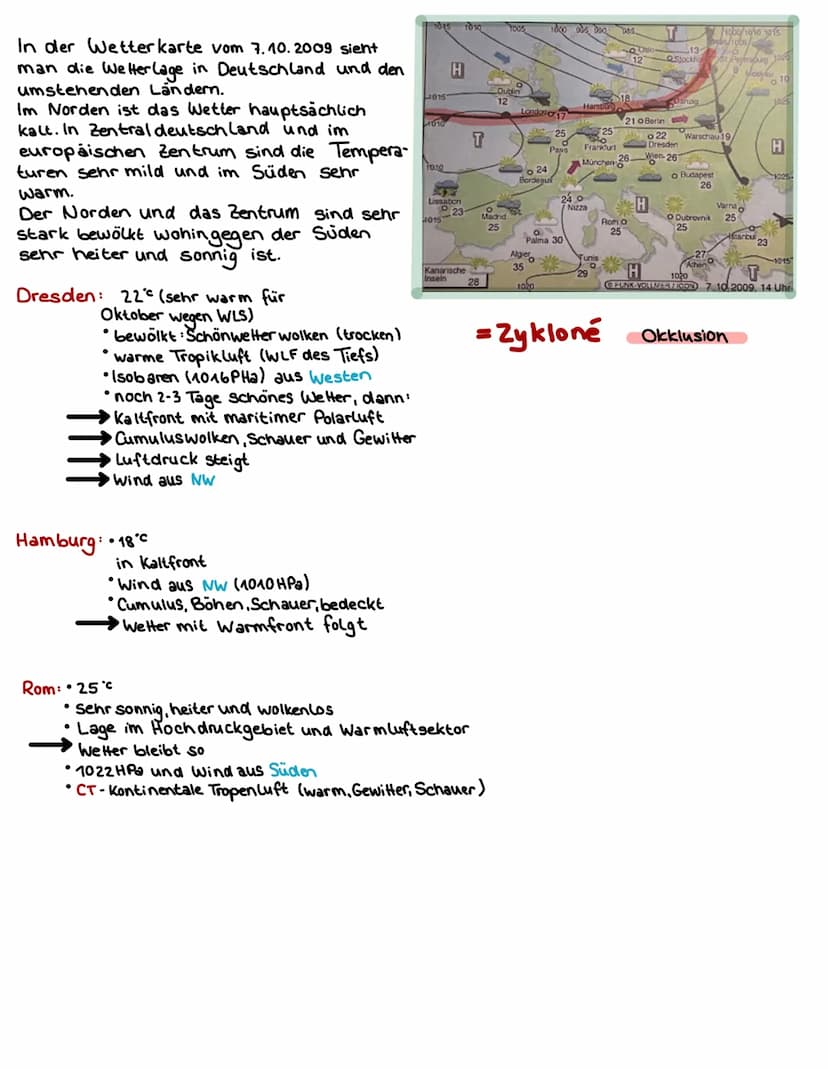 In der Wetterkarte vom 7.10.2009 sieht
man die Wetterlage in Deutschland und den
umstehenden Ländern.
Im Norden ist das Wetter hauptsächlich
kalt. In Zentraldeutschland und im
europäischen Zentrum sind die Tempera-
turen sehr mild und im Süden sehr
warm.
Der Norden und das Zentrum sind sehr
stark bewölkt wohingegen der Süden
sehr heiter und sonnig ist.
1015 1010 1005 1000 995 990 985 T 1000 1010 1015
H Oslo 12 13 Stockh St. Petersburg 1020
Moskau 10
1015 Dublin 12 London 17 Hamburg 18 Danzig 1025
1010 21 Berlin
T 25 Paris 25 Frankfurt 22 Dresden Warschau 19 H
1010 24 Bordeaux München 26 Wien 26 Budapest 26 1025
Lissabon 23 1015 Madrid 25 24 Nizza H Rom 25 Dubrovnik 25 Varna 25
Palma 30 Istanbul 23
Algier 35 Tunis 29 27 Athen 1015
Kanarische Inseln 26 1020 H 1020 T
© FUNK-VOLLMER/ICON 7.10.2009, 14 Uhr
= Zykloné Okklusion
Dresden: 22°C (sehr warm für
Oktober wegen WLS)
• bewölkt: Schönwetterwolken (trocken)
• warme Tropikluft (WLF des Tiefs)
• Isobaren (1016PHa) aus Westen
• noch 2-3 Tage schönes Wetter, dann:
→ Kaltfront mit maritimer Polarluft
→ Cumuluswolken, Schauer und Gewitter
→ Luftdruck steigt
→ Wind aus NW
Hamburg: • 18°C
in Kaltfront
• Wind aus NW (1010HPa)
• Cumulus, Böhen, Schauer, bedeckt
→ Wetter mit Warmfront folgt
Rom: • 25°C
• Sehr sonnig, heiter und wolkenlos
• Lage im Hochdruckgebiet und Warmluftsektor
→ Wetter bleibt so
• 1022HPa und Wind aus Süden
• CT - Kontinentale Tropenluft (warm, Gewitter, Schauer)